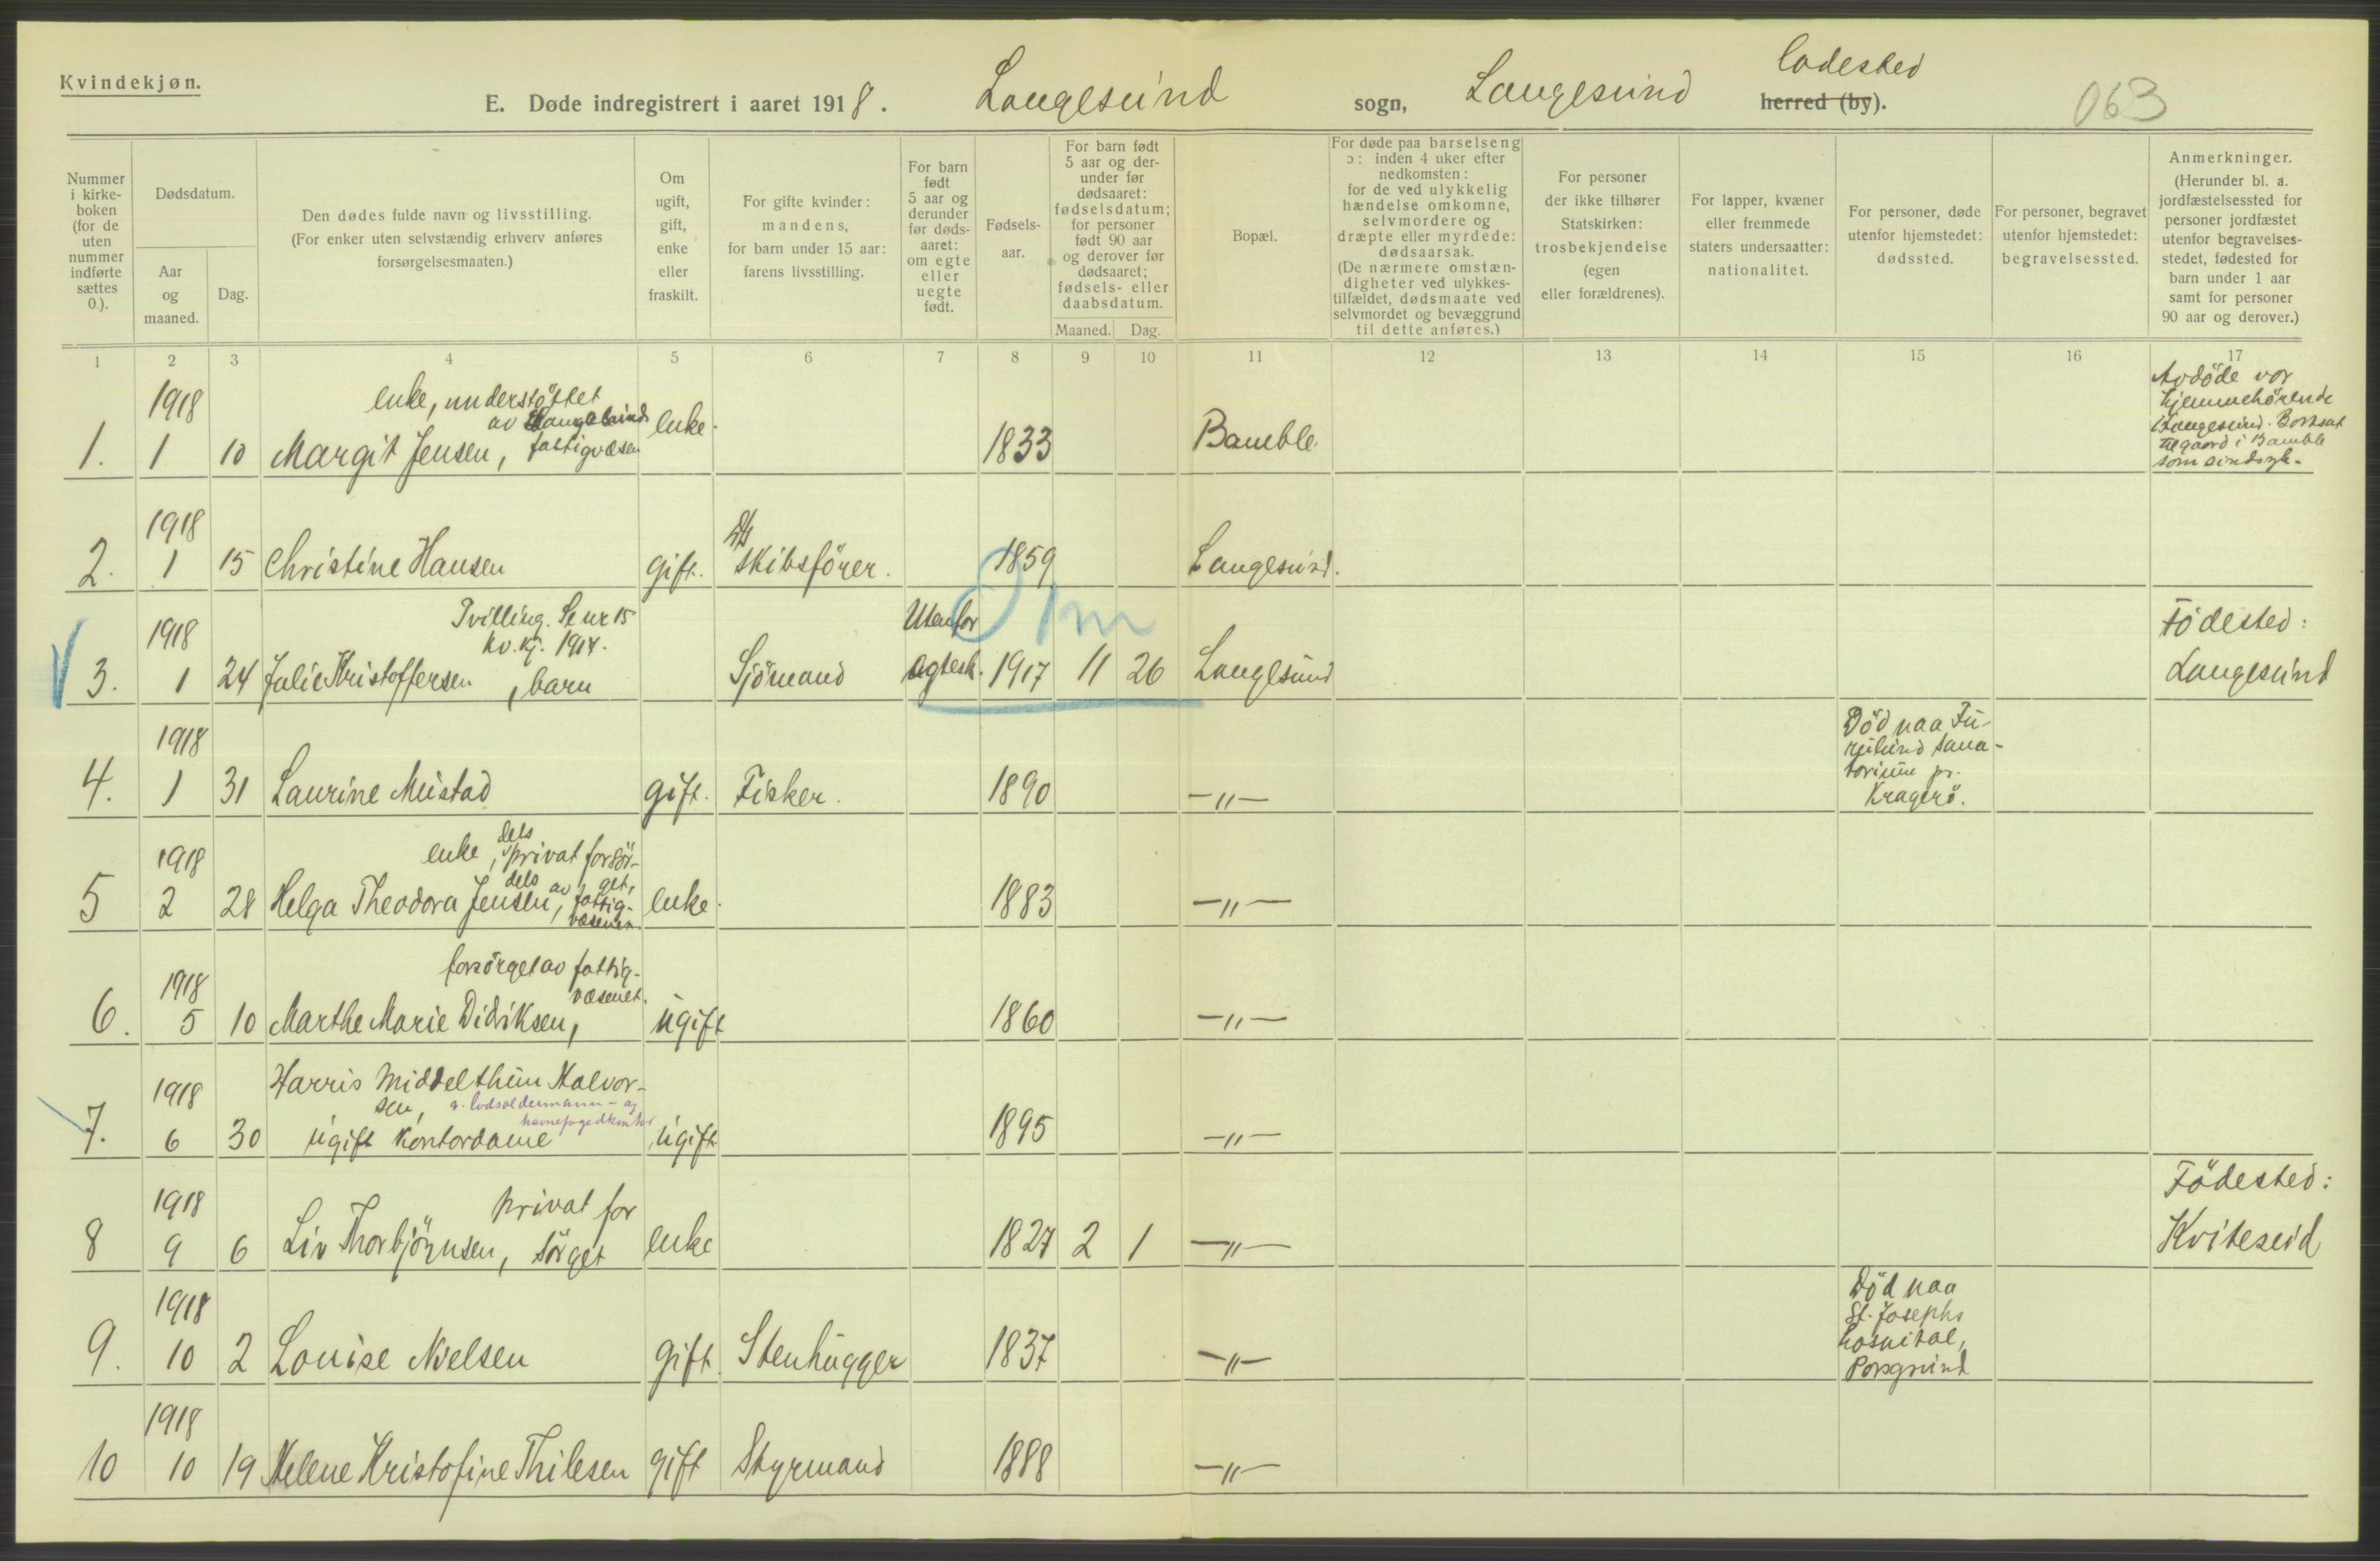 Kvindekjøn.
E. Døde indregistrert i aaret 1918. Langesund sogn, Langesund ladested herred (by).
063
Nummer i kirke-boken (for de uten nummer indførte sættes 0.).
Dødsdatum.
Aar og maaned.
Dag.
Den dødes fulde navn og livsstilling.
(For enker uten selvstændig erhverv anføres forsørgelsesmaaten.)
Om ugift, gift, enke eller fraskilt.
For gifte kvinder: mandens, for barn under 15 aar: farens livsstilling.
For barn født 5 aar og derunder før døds-aaret: om egte eller uegte født.
Fødsels-aar.
For barn født 5 aar og der-under før dødsaaret: fødselsdatum; for personer født 90 aar og derover før dødsaaret; fødsels- eller daabsdatum.
Maaned. Dag.
Bopæl.
For døde paa barselseng ɔ: inden 4 uker efter nedkomsten: for de ved ulykkelig hændelse omkomne, selvmordere og dræpte eller myrdede: dødsaarsak. (De nærmere omstæn-digheter ved ulykkes-tilfældet, dødsmaate ved selvmordet og bevæggrund til dette anføres.)
For personer der ikke tilhører Statskirken: trosbekjendelse (egen eller forældrenes).
For lapper, kvæner eller fremmede staters undersaatter: nationalitet.
For personer, døde utenfor hjemstedet: dødssted.
For personer, begravet utenfor hjemstedet: begravelsessted.
Anmerkninger. (Herunder bl. a. jordfæstelsessted for personer jordfæstet utenfor begravelses-stedet, fødested for barn under 1 aar samt for personer 90 aar og derover.)
1 2 3 4 5 6 7 8 9 10 11 12 13 14 15 16 17
1918
enke, understöttet
av Langesund
1. 1 10 Margit Jensen, fattigvæsen enke. 1833 Bamble
Avdöde var
hjemmehörende
i Langesund. Bortsat
til gaard i Bamble
som sindsyk.
1918
2. 1 15 Christine Hansen gift. D/s skibsförer. 1859 Langesund.
1918
Tvilling. Se nr 15
kv. kj. 1917.
Om
3. 1 24 Julie Kristoffersen, barn Sjömand Utenfor egtesk. 1917 11 26 Langesund
Födested:
Langesund
1918
4. 1 31 Laurine Mustad gift. Fisker. 1890 –"–
Död paa Fu-
rulund sana-
torium pr.
Kragerö.
1918
enke, dels privat forsör-
get,
5 2 28 Helga Theodora Jensen, dels av fattig-
væsenet. enke. 1883 –"–
1918
forsörget av fattig-
væsenet.
6. 5 10 Marthe Marie Didriksen, ugift 1860 –"–
1918
Harris Middelthun Halvor-
sen, v. lodsoldermann- og
havnefogedkontor
7. 6 30 ugift kontordame ugift 1895 –"–
1918
privat for
8 9 6 Liv Thorbjörnsen, sörget enke 1827 2 1 –"–
Födested:
Kviteseid
1918
9. 10 2 Louise Nielsen gift. Stenhugger 1837 –"–
Död paa
St. Josephs
hospital,
Porsgrund
1918
10 10 19 Helene Kristofine Thilesen gift Styrmand 1888 –"–